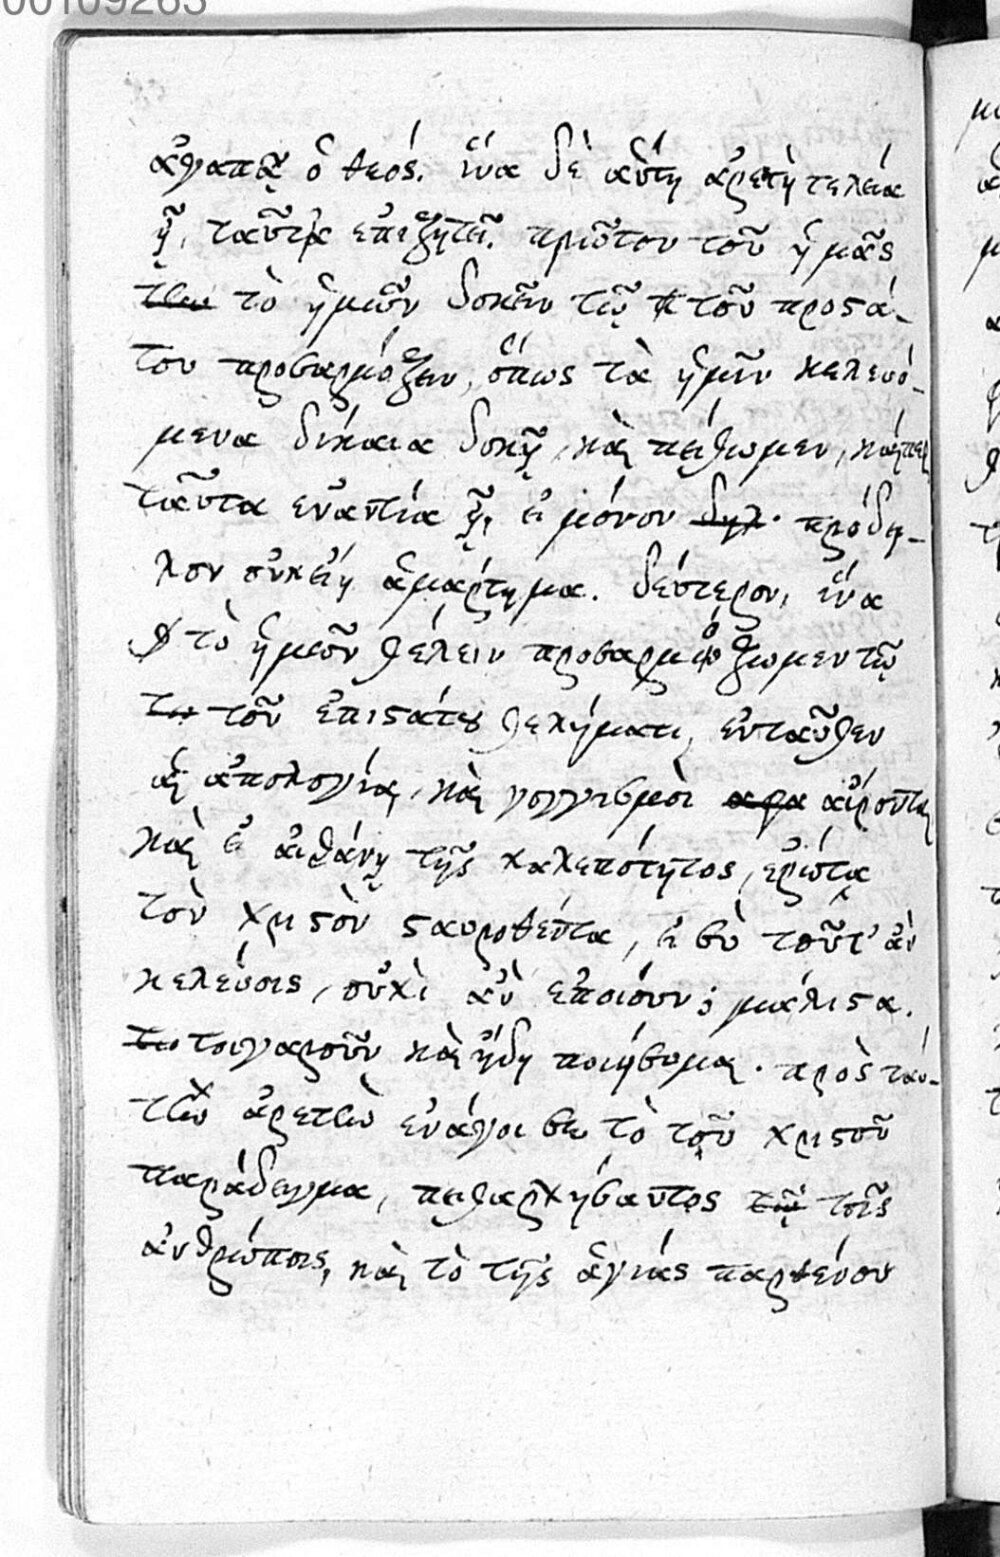 00109263
ἀγαπᾷ ὁ θεός. ἵνα δὲ ἁύτη ἀρετὴ τελεία
ᾖ, ταῦτα ἐπιζητεῖ. πρῶτον τοῦ ἡμᾶς
τὸ ἡμῶν δοκεῖν τῷ τοῦ προςά-
του προσαρμόζειν, ὅπως τὰ ἡμῖν κελευό-
μενα δίκαια δοκῇ, καὶ πείθωμεν, καίπερ
ταῦτα ἐναντία ᾖ, εἰ μόνον δηλ. πρόδη-
λον οὐκ είη ἁμάρτημα. δεύτερον, ἵνα
τὸ ἡμῶν θέλειν προσαρμόζωμεν τῷ
τοῦ ἐπιςάτου θελήματι, ἐνταῦθεν
αἱ ἀπολογίαι, καὶ γογγυσμὸι αρα αἰροῦνται
καὶ εἰ αἰσθάνῃ τῆς χαλεπότητος, ἐρώτα
τὸν χριςὸν ςαυροθέντα, εἰ σὺ τοῦτ' ἂν
κελεύοις, οὐχὶ ἂν ἐποιόυν; μάλιςα.
τοιγαροῦν καὶ ἤδη ποιήσομαι. πρὸς ταύ-
την ἀρετὴν ἐνάγοι σε τὸ τοῦ χριςοῦ
παράδειγμα, πειθαρχήσαντος τοῖς
ἀνθρώποις, καὶ τὸ τῆς ἁγιάς παρθένου